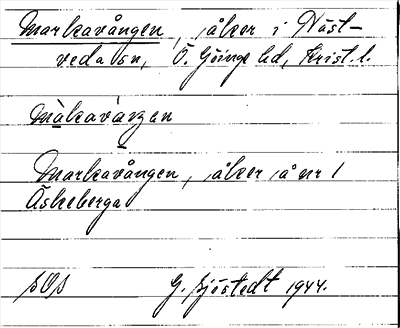 Markavången, åker i Häst-
veda sn, Ö. Göinge hd, Krist. l.
màkavàŋen
Markavången, åker å nr 1
Äskeberga
SOS G. Sjöstedt 1944.